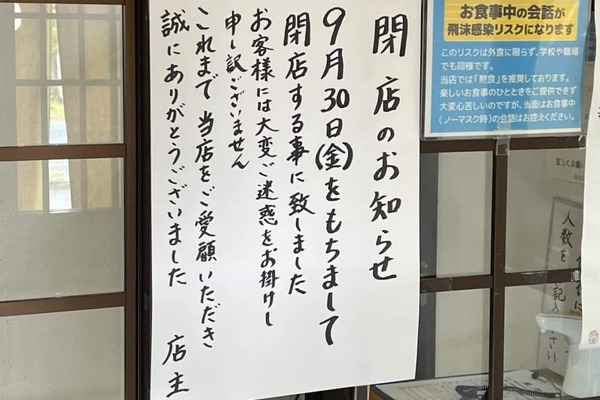 閉店のお知らせ
9月30日(金)をもちまして
閉店する事に致しました
お客様には大変ご迷惑をお掛けし
申し訳ございません
これまで当店をご愛顧いただき
誠にありがとうございました
店主
お食事中の会話が
飛沫感染リスクになります
このリスクは外食に限らず、学校や職場
でも同様です。
当店では「黙食」を推奨しております。
楽しいお食事のひとときをご提供できず
大変心苦しいのですが、当面はお食事中
(ノーマスク時)の会話はお控えください。
人数を
記入
さい